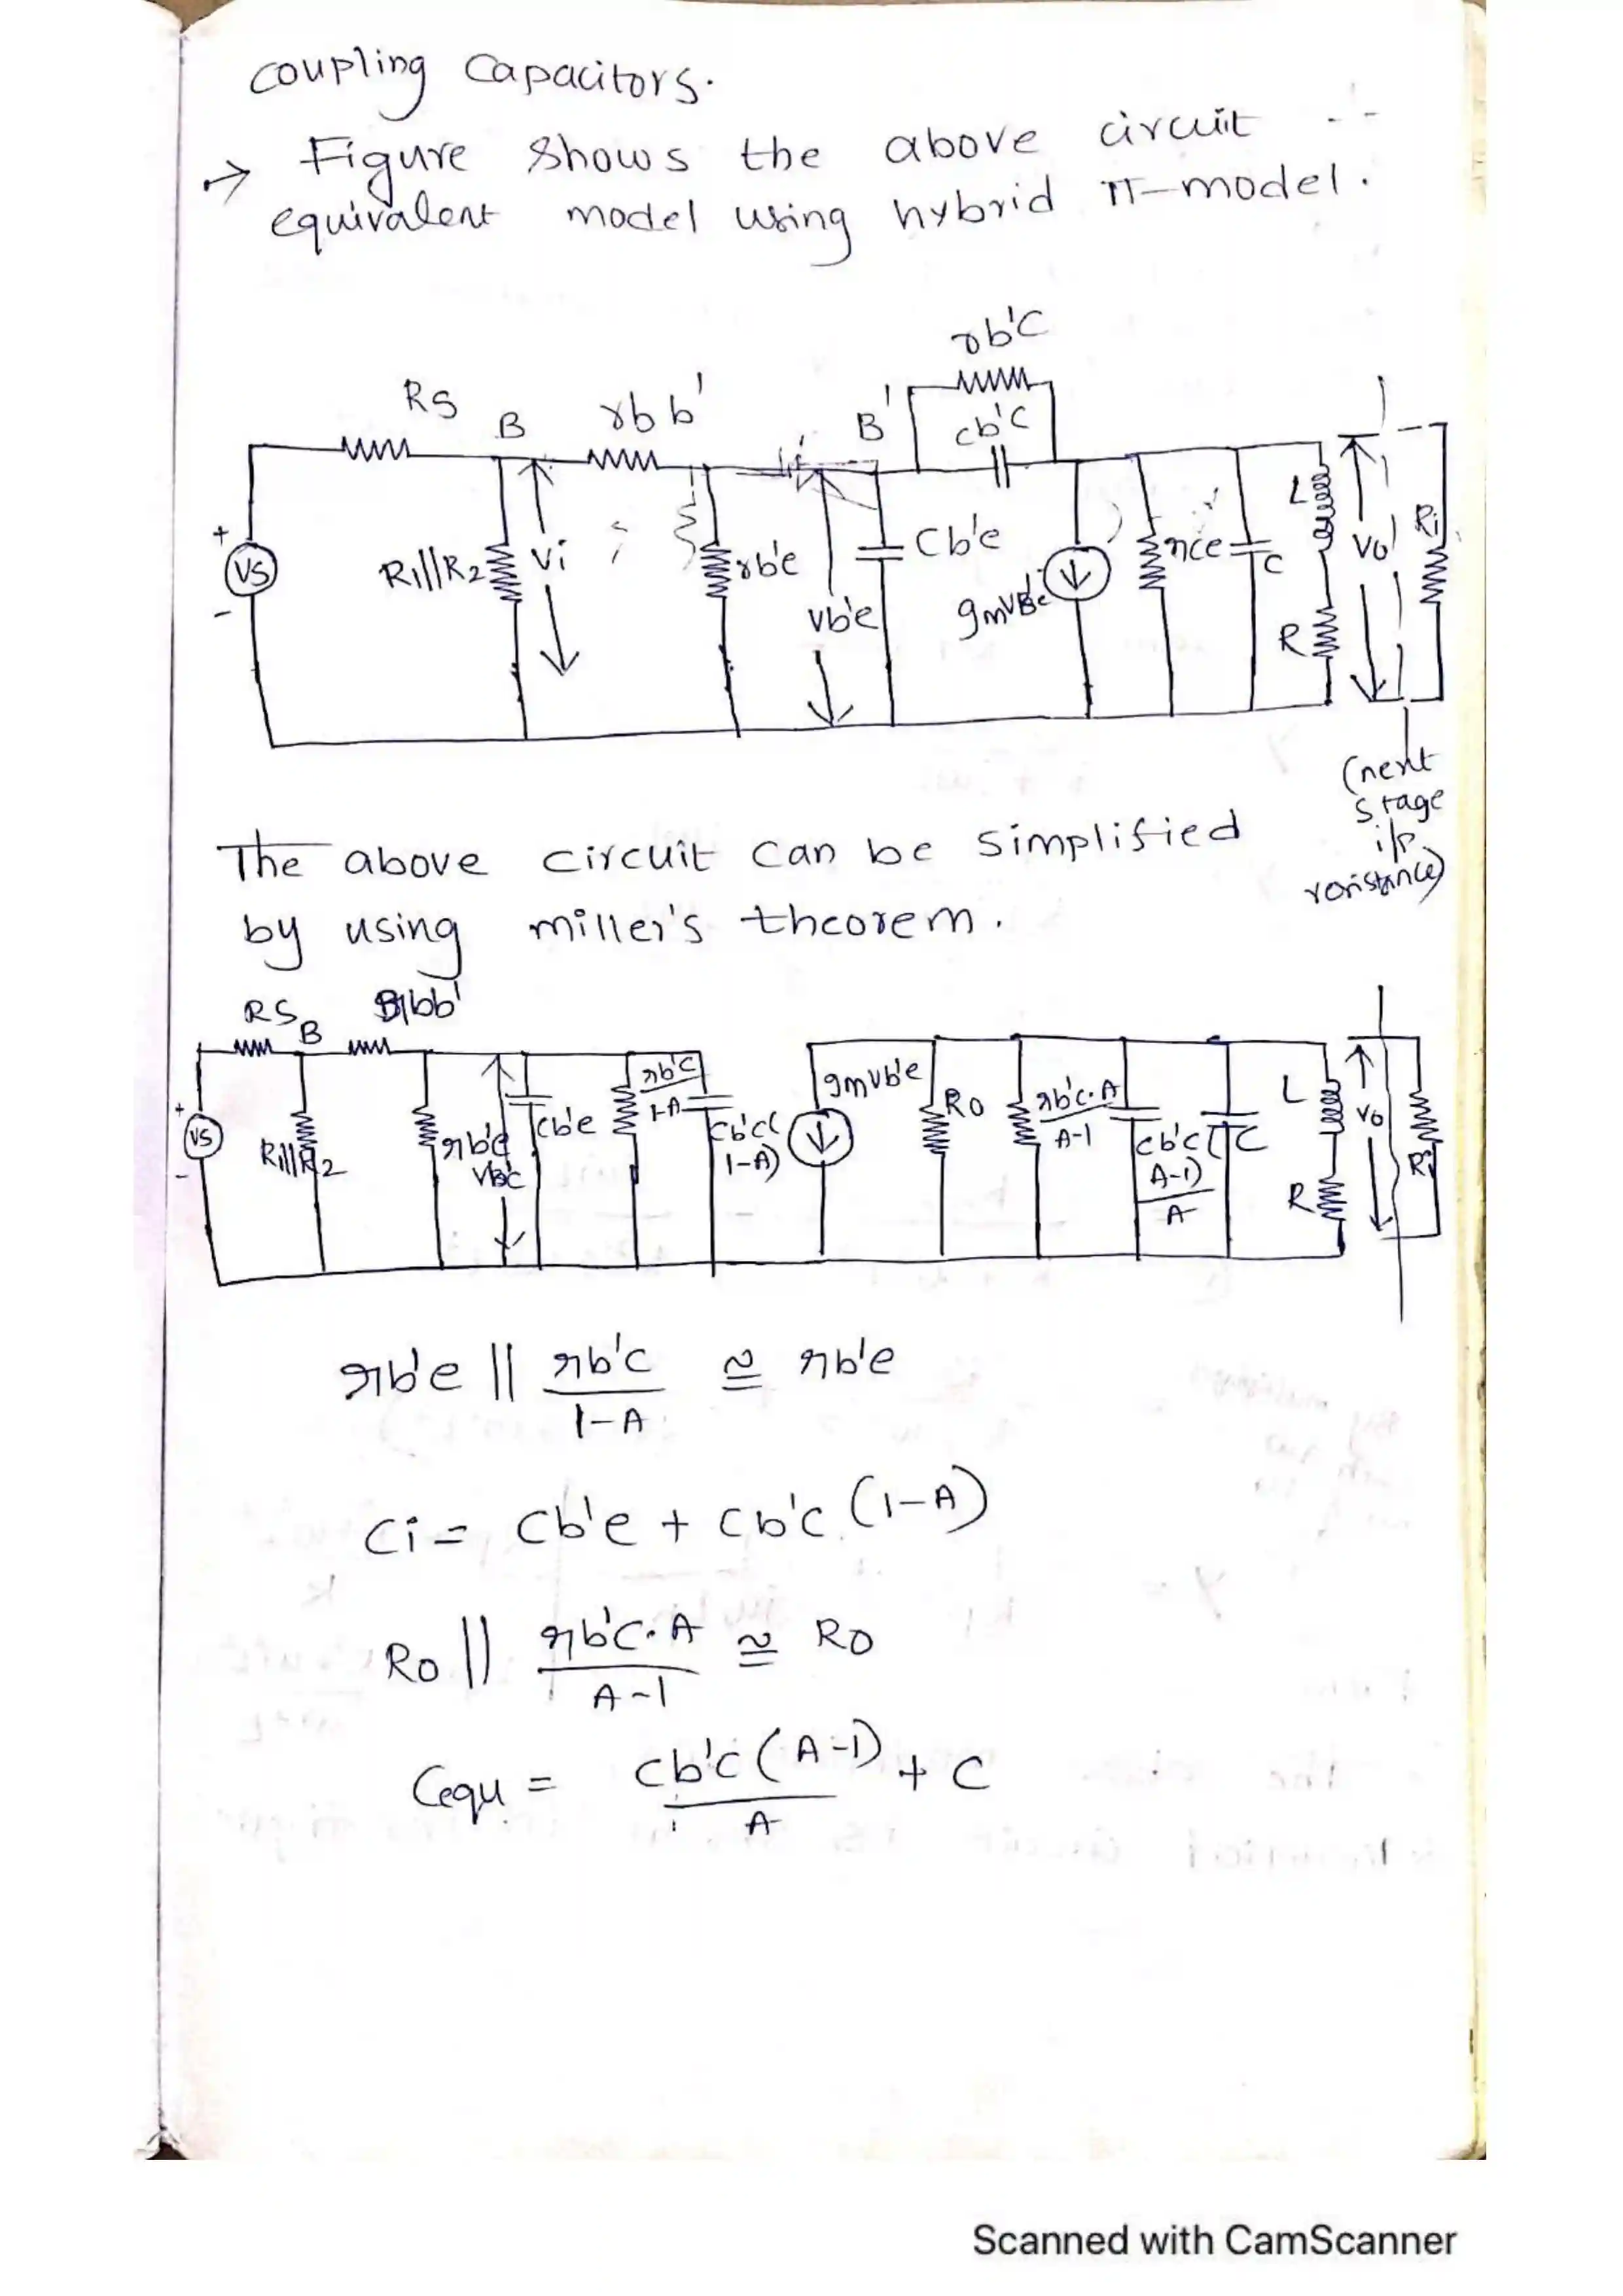 coupling capacitors.
→ Figure shows the above circuit
equivalent model using hybrid π-model.
rb'c
Rs B rbb' B' cb'c
+ Vs -
R1||R2 Vi rb'e Vb'e Cb'e gmVb'e rce C L R Vo Ri
(next
stage
i/p
resistance)
The above circuit can be simplified
by using miller's theorem.
RS B rbb'
+ Vs -
R1||R2 rb'e Vb'e Cb'e rb'c/1-A Cb'c(1-A) gmVb'e Ro rb'c.A/A-1 Cb'c(A-1)/A C L R Vo Ri
rb'e || rb'c/1-A ≅ rb'e
Ci = Cb'e + Cb'c (1-A)
Ro || rb'c.A/A-1 ≅ Ro
Cequ = Cb'c(A-1)/A + C
Scanned with CamScanner